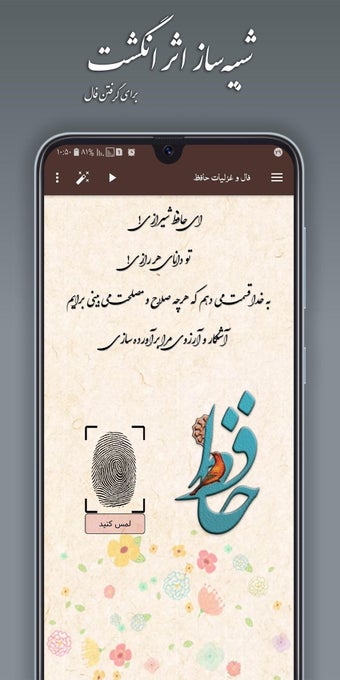 شبیه‌ساز اثر انگشت
برای گرفتن فال
۱۰:۵۰ ۸۱% ۲۹
فال و غزلیات حافظ
ای حافظ شیرازی!
تو دانای هر رازی!
به خدا قسمت می دهم که هرچه صلاح و مصلحت می بینی برایم
آشکار و آرزوی مرا برآورده سازی
حافظ
لمس کنید